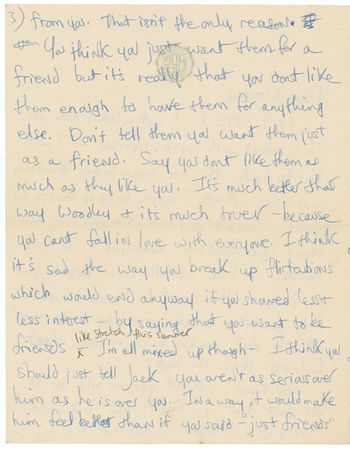 3) from you. That isn't the only reason.
You think you just want them for a
friend but it's really that you dont like
them enough to have them for anything
else. Don't tell them you want them just
as a friend. Say you dont like them as
much as they like you. It's much better that
way Woodley & its much truer – because
you cant fall in love with everyone. I think
it's sad the way you break up flirtations
which would end anyway if you showed
less interest – by saying that you want to be
like Stretch this summer
friends I'm all mixed up though – I think you
should just tell Jack you aren't as serias over
him as he is over you. In a way it would make
him feel better than if you said – "just friends"